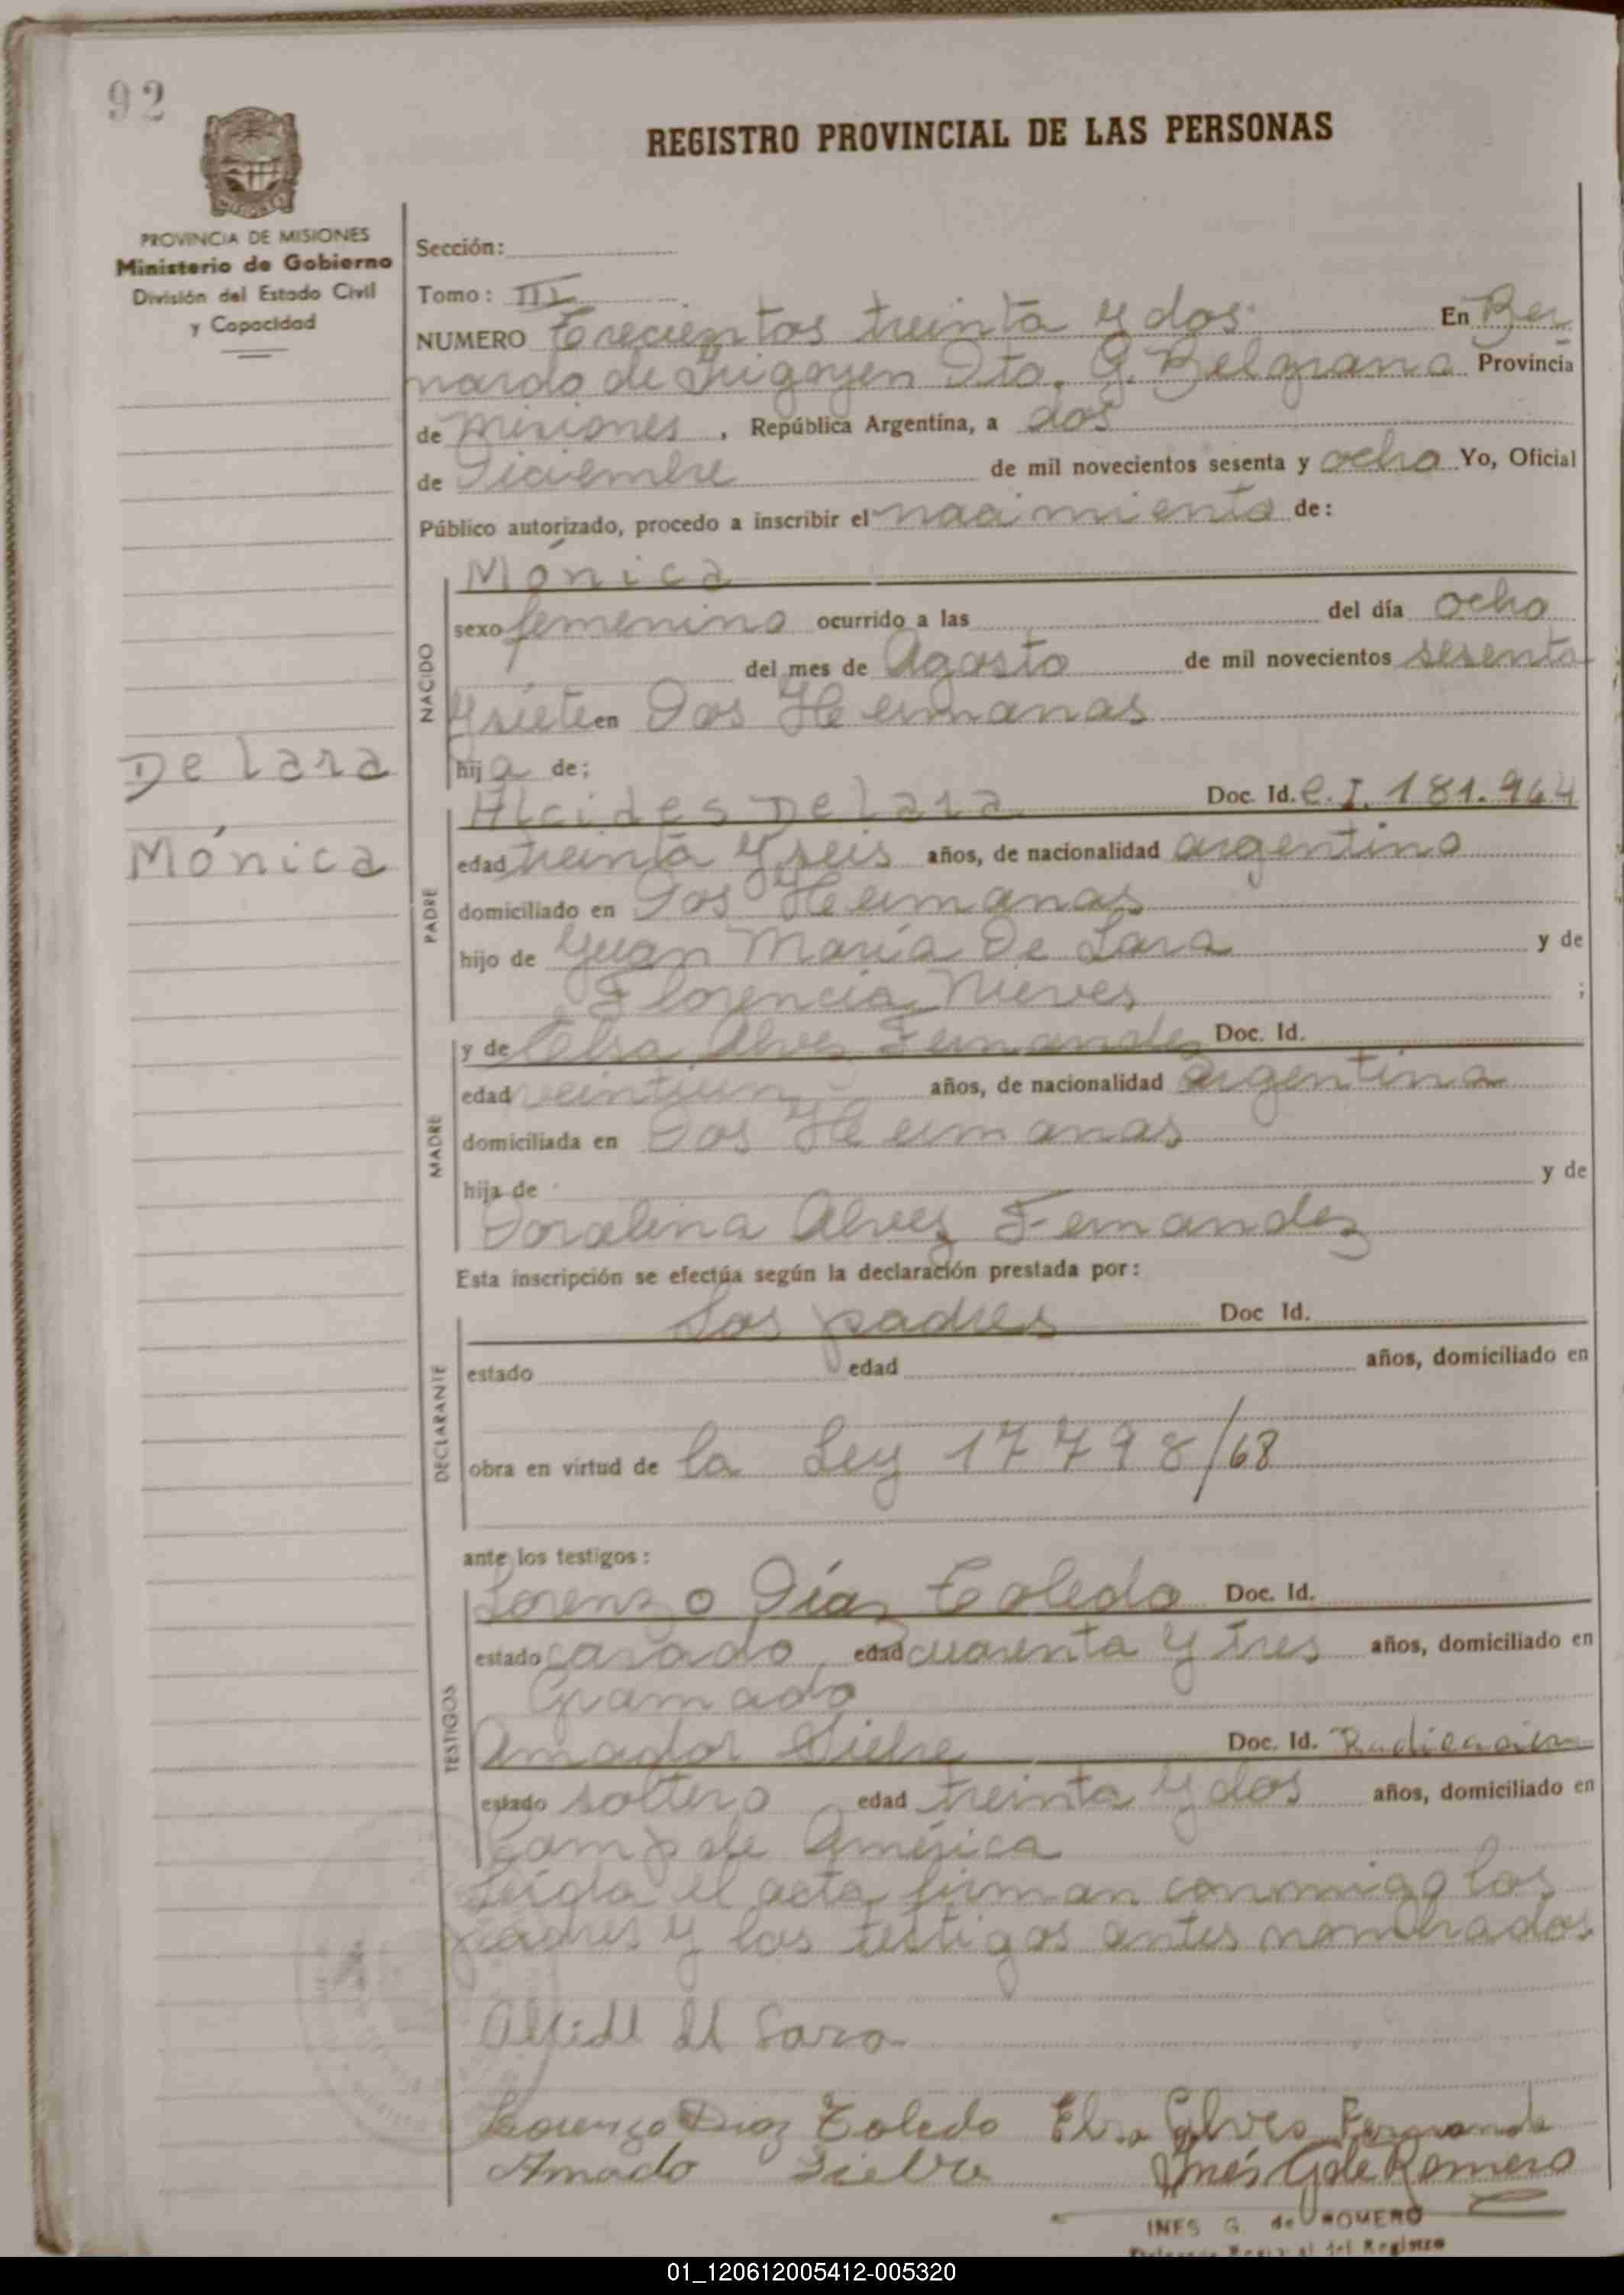 92
REGISTRO PROVINCIAL DE LAS PERSONAS
MISIONES
PROVINCIA DE MISIONES
Ministerio de Gobierno
División del Estado Civil
y Capacidad
Sección:
Tomo: III
NUMERO Trecientos treinta y dos En Ber
nardo de Irigoyen Dto. G. Belgrano Provincia
de Misiones, República Argentina, a dos
de Diciembre de mil novecientos sesenta y ocho Yo, Oficial
Público autorizado, procedo a inscribir el nacimiento de:
NACIDO
Mónica
sexo femenino ocurrido a las del día ocho
del mes de Agosto de mil novecientos sesenta
y siete en Dos Hermanas
hija de:
De Lara
Mónica
PADRE
Alcides De Lara Doc. Id. C.I. 181.964
edad treinta y seis años, de nacionalidad argentino
domiciliado en Dos Hermanas
hijo de Juan María De Lara y de
Florencia Nieves ;
MADRE
y de Elsa Alves Fernandez Doc. Id.
edad veintiun años, de nacionalidad argentina
domiciliada en Dos Hermanas
hija de y de
Doralina Alves Fernandez
Esta inscripción se efectúa según la declaración prestada por:
DECLARANTE
Los padres Doc Id.
estado edad años, domiciliado en
obra en virtud de la Ley 17798/68
ante los testigos:
TESTIGOS
Lorenzo Díaz Toledo Doc. Id.
estado casado edad cuarenta y tres años, domiciliado en
Gramado
Amador Doc. Id. Radicación
estado soltero edad treinta y dos años, domiciliado en
de América
Leída el acta firman conmigo los
padres y los testigos antes nombrados
Lara
Lourenço Diaz Toledo Elsa Alves Fernande
Amado Inés G de Romero
INES G. de ROMERO
del Registro
01_120612005412-005320